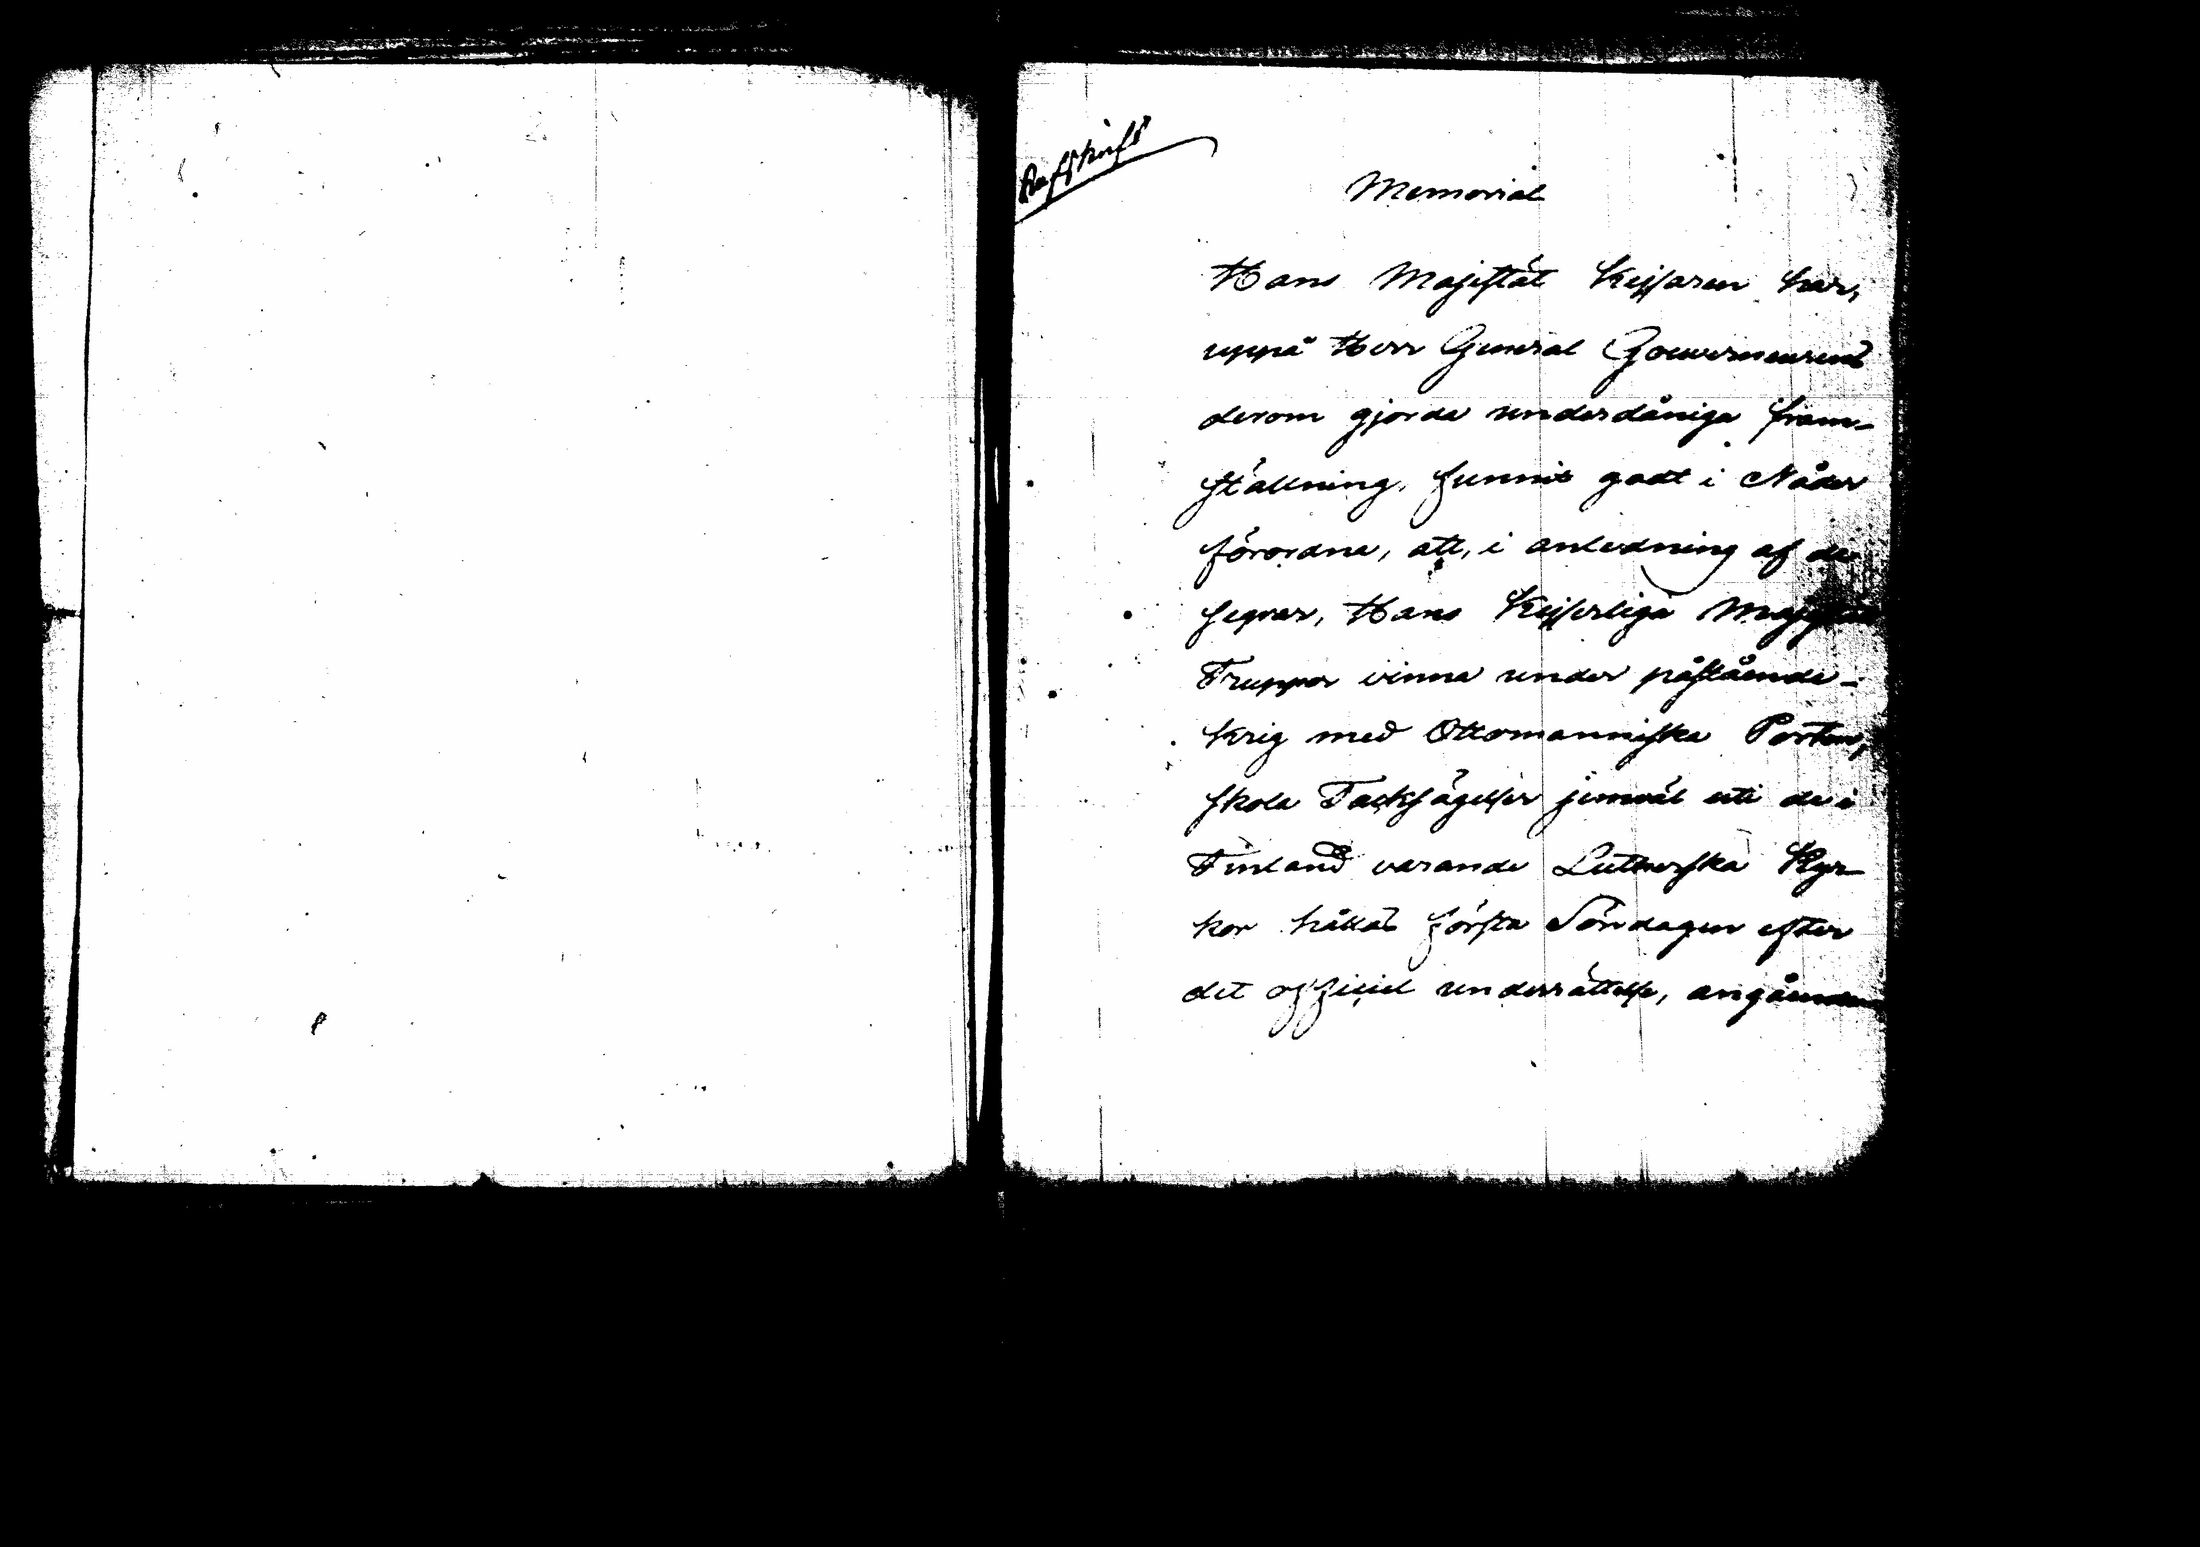 Afskrift
Memorial
Hans Majestät Kejsaren har,
uppå Herr General Gouverneurens
derom gjorde underdåniga fram-
ställning, funnit godt i Nåder
förordna, att, i anledning af de
segrar, Hans Kejserliga Majestäts
Trupper vinna under påstående
krig med Ottomanniska Porten,
skola Tacksägelser jemväl uti de i
Finland varande Lutherska Kyr-
kor hållas första Söndagen efter
det officiel underrättelse, angående